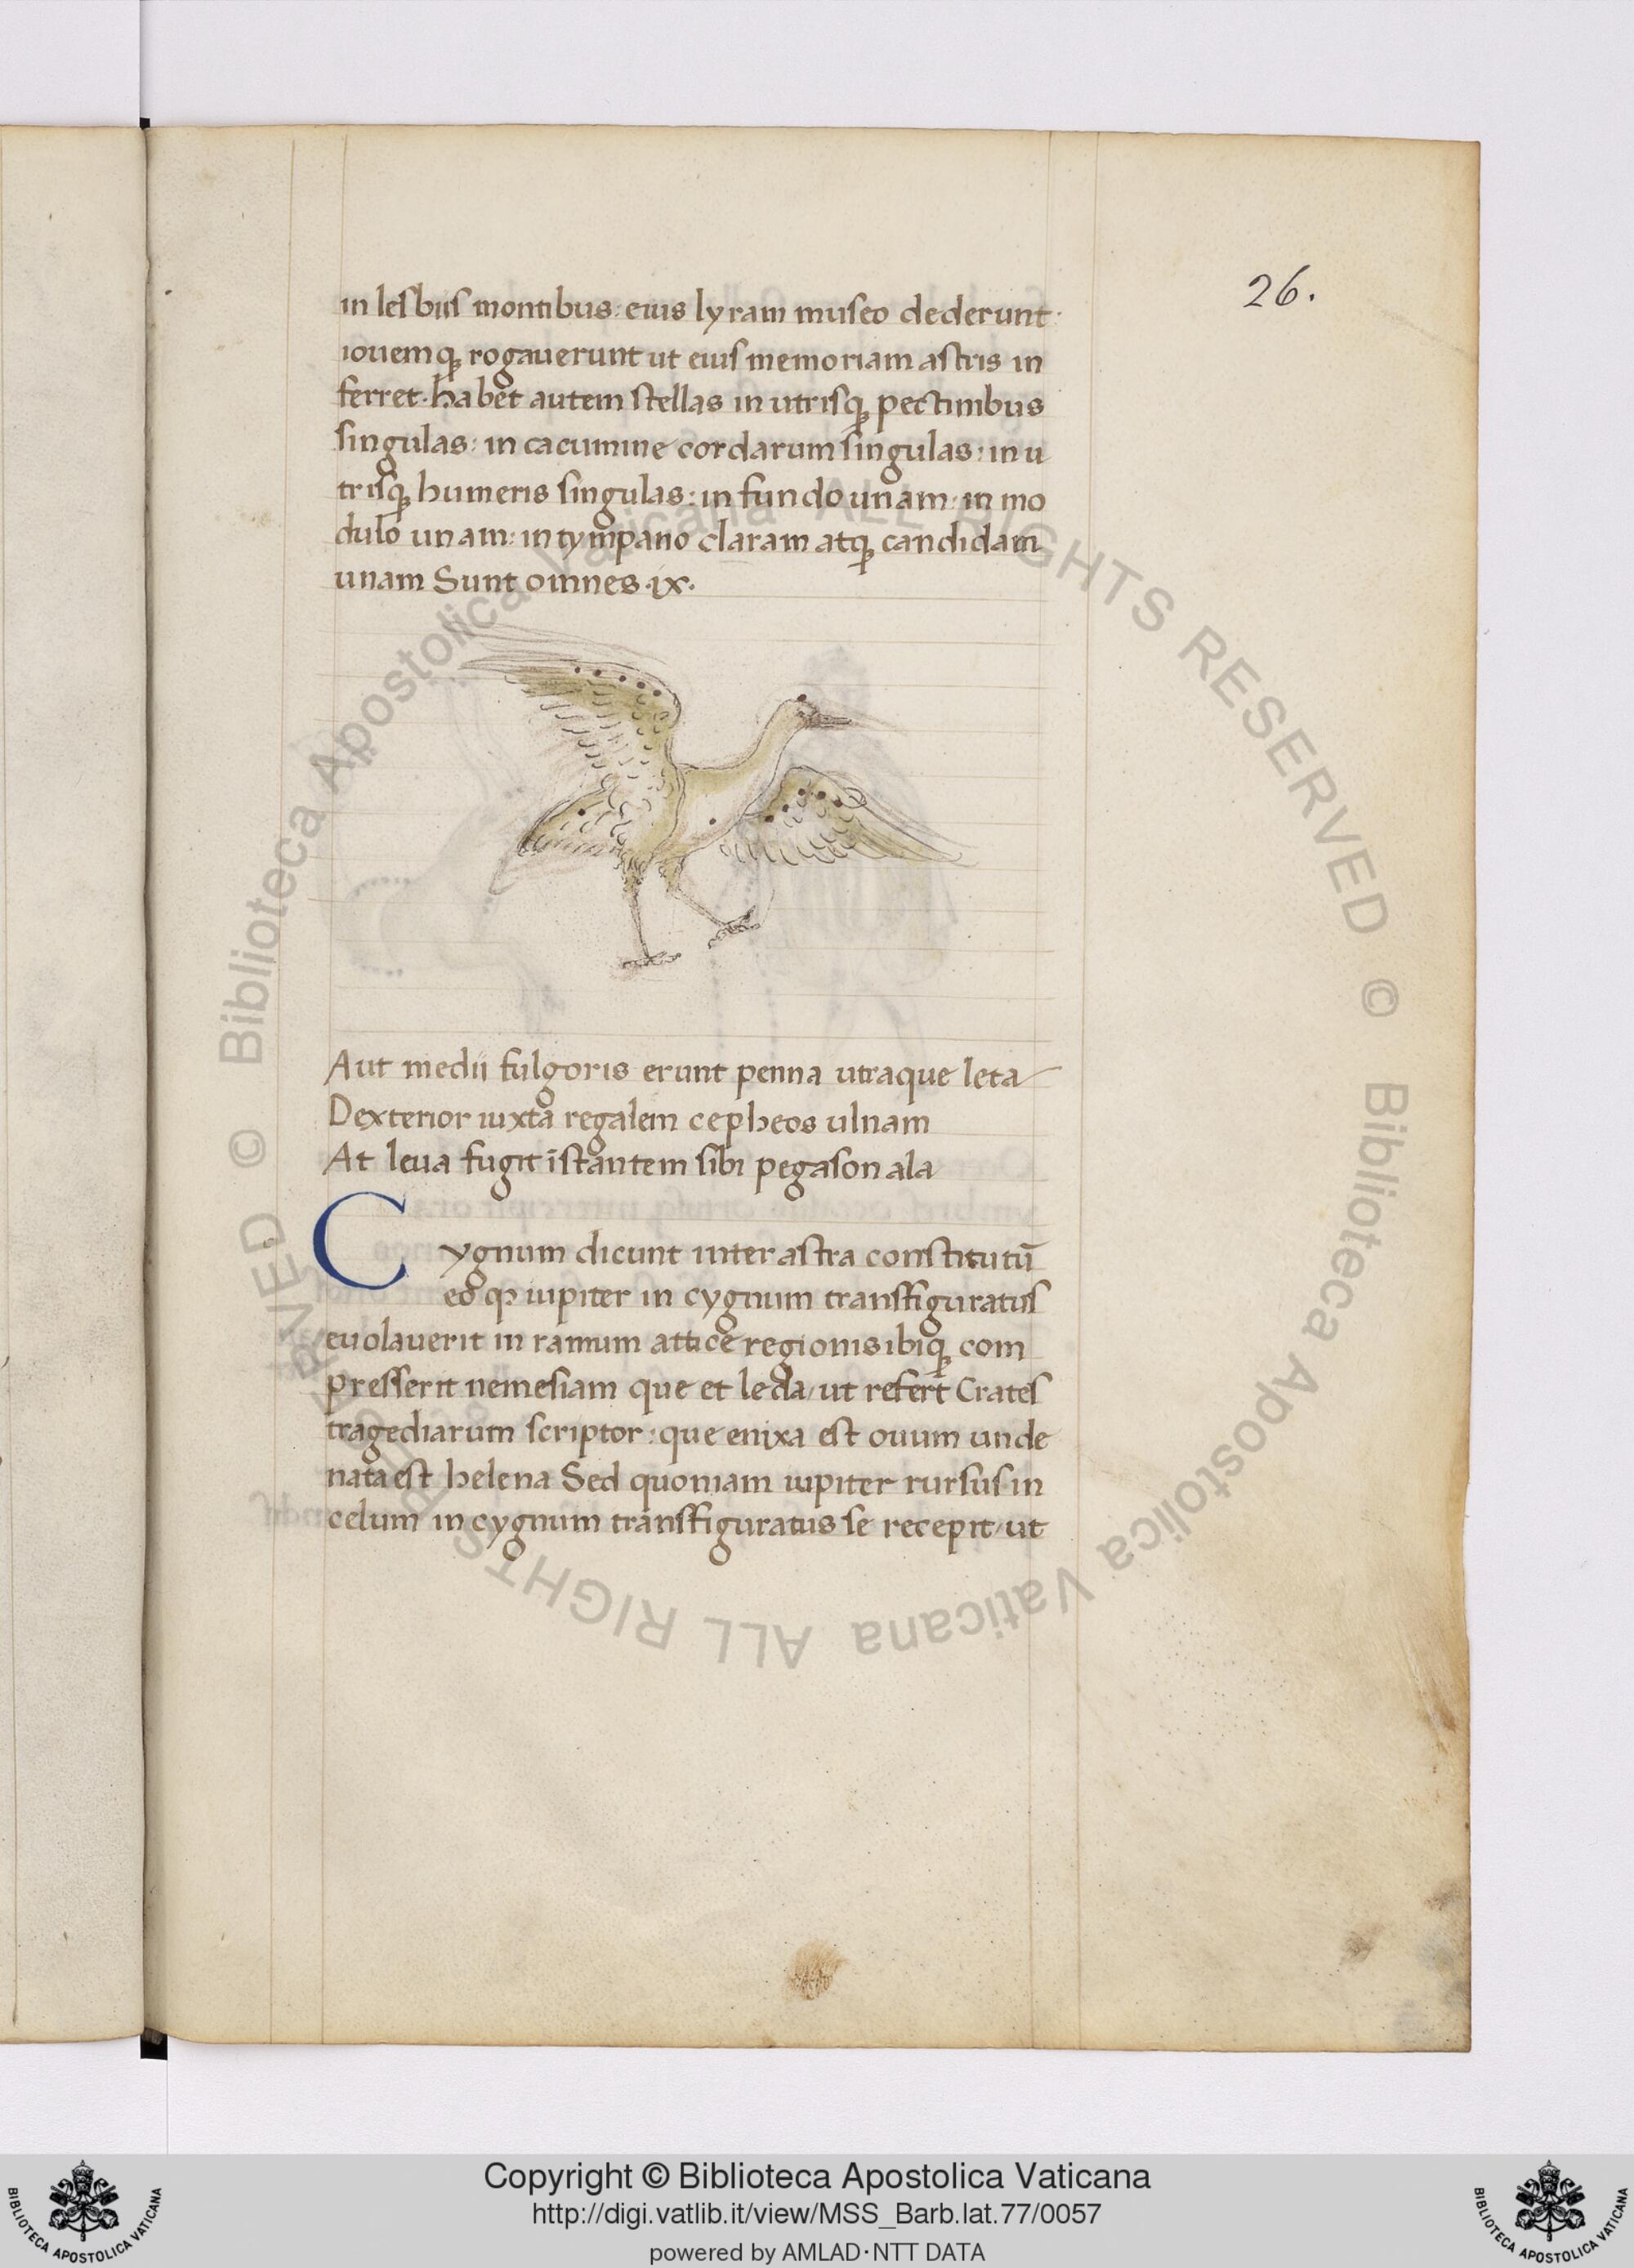 26.
in lesbiis montibus: eius lyram museo dederunt·
iouemqꝫ rogauerunt ut eius memoriam astris in
ferret· habet autem stellas in utrisqꝫ pectinibus
singulas: in cacumine cordarum singulas: in u
trisqꝫ humeris singulas: in fundo unam· in mo
dulo unam: in tympano claram atqꝫ candidam
unam Sunt omnes ·ix·
Aut medii fulgoris erunt penna utraque leta
Dexterior iuxta regalem cepheos ulnam
At leua fugit īstantem sibi pegason ala
Cygnum dicunt inter astra constitutū
eo ꝙ iupiter in cygnum transfiguratus
euolauerit in ramum attice regionis ibiqꝫ com
presserit nemesiam que et leda/ ut refert Crates
tragediarum scriptor: que enixa est ouum unde
nata est helena Sed quoniam iupiter rursus in
celum in cygnum transfiguratus se recepit/ ut
© Biblioteca Apostolica Vaticana ALL RIGHTS RESERVED
© Biblioteca Apostolica Vaticana ALL RIGHTS RESERVED
Copyright © Biblioteca Apostolica Vaticana
http://digi.vatlib.it/view/MSS_Barb.lat.77/0057
powered by AMLAD·NTT DATA
BIBLIOTECA APOSTOLICA VATICANA
BIBLIOTECA APOSTOLICA VATICANA